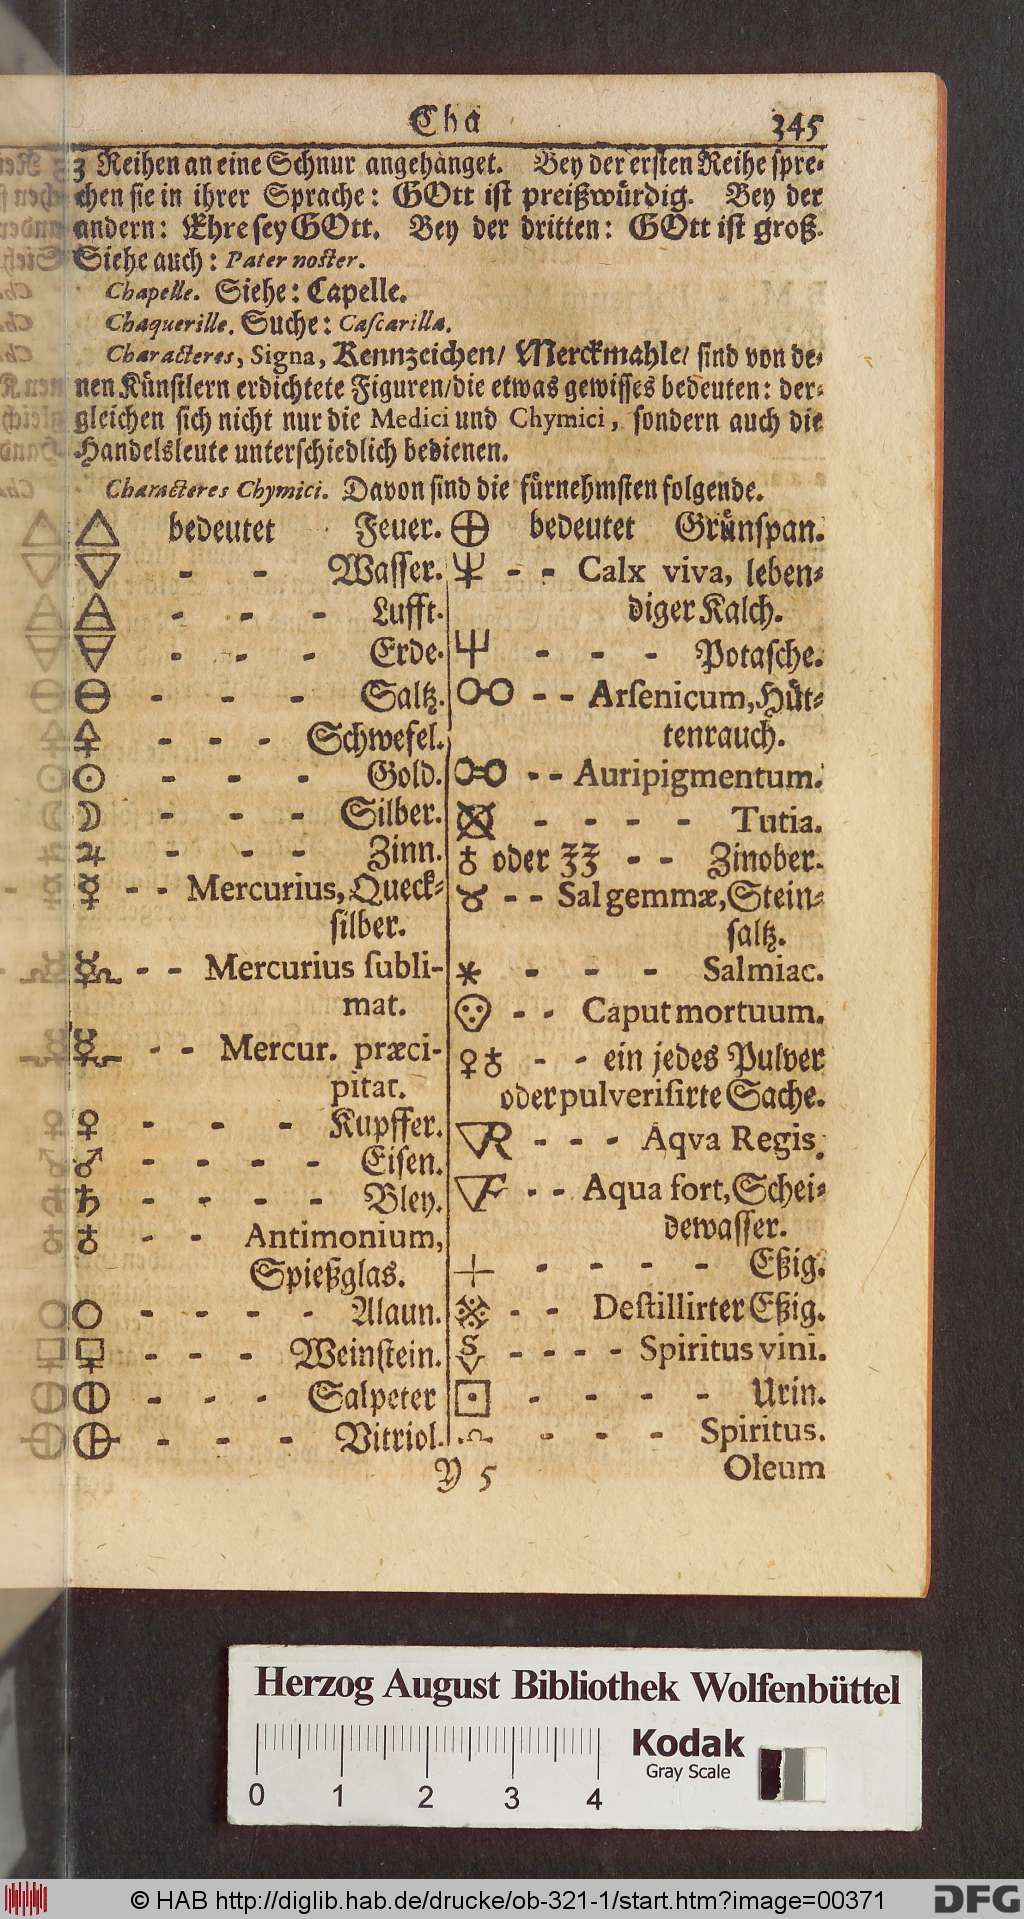 Cha
345
3 Reihen an eine Schnur angehänget. Bey der ersten Reihe spre-
chen sie in ihrer Sprache: GOtt ist preißwürdig. Bey der
andern: Ehre sey GOtt. Bey der dritten: GOtt ist groß.
Siehe auch: Pater noster.
Chapelle. Siehe: Capelle.
Chaquerille. Suche: Cascarilla.
Characteres, Signa, Kennzeichen/ Merckmahle/ sind von de-
nen Künstlern erdichtete Figuren/die etwas gewisses bedeuten: der-
gleichen sich nicht nur die Medici und Chymici, sondern auch die
Handelsleute unterschiedlich bedienen.
Characteres Chymici. Davon sind die fürnehmsten folgende.
🜂 bedeutet Feuer.
🜄 - - Wasser.
🜁 - - - Lufft.
🜃 - - - Erde.
🜔 - - - Saltz.
🜍 - - - Schwefel.
☉ - - - Gold.
☽ - - - Silber.
♃ - - - Zinn.
☿ - - Mercurius, Queck-
silber.
- - Mercurius subli-
mat.
- - Mercur. præci-
pitat.
♀ - - - Kupffer.
♂ - - - - Eisen.
♄ - - - - Bley.
♁ - - Antimonium,
Spießglas.
○ - - - - Alaun.
- - - Weinstein.
🜕 - - - Salpeter
🜖 - - - Vitriol.
🜨 bedeutet Grünspan.
- - Calx viva, leben-
diger Kalch.
- - - Potasche.
- - Arsenicum, Hüt-
tenrauch.
- - Auripigmentum.
- - - - Tutia.
♁ oder 33 - - Zinober.
♉ - - Sal gemmæ, Stein-
saltz.
* - - - Salmiac.
- - Caput mortuum.
♀♁ - - ein jedes Pulver
oder pulverisirte Sache.
🜄R - - - Aqva Regis.
🜄F - - Aqua fort, Schei-
dewasser.
+ - - - - Eßig.
- - Destillirter Eßig.
S
V - - - - Spiritus vini.
⊡ - - - - Urin.
- - - Spiritus.
Y 5
Oleum
Herzog August Bibliothek Wolfenbüttel
Kodak
Gray Scale
0 1 2 3 4
© HAB http://diglib.hab.de/drucke/ob-321-1/start.htm?image=00371
DFG